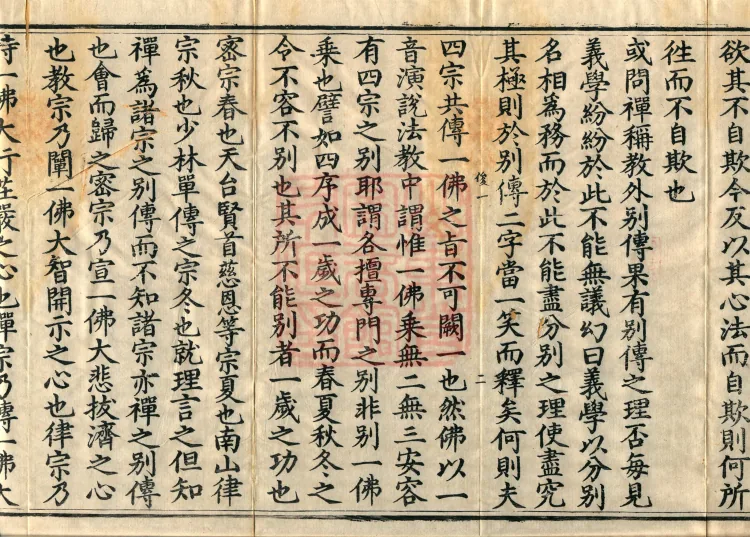 欲其不自欺今反以其心法而自欺則何所
徃而不自欺也
或問禪稱教外别傳果有别傳之理否每見
義學紛紛於此不能無議幻曰義學以分别
名相爲務而於此不能盡分别之理使盡究
其極則於别傳二字當一笑而釋矣何則夫
俊一
二
四宗共傳一佛之旨不可闕一也然佛以一
音演說法教中謂惟一佛乗無二無三安容
有四宗之别耶謂各擅專門之别非别一佛
乗也譬如四序成一歲之功而春夏秋冬之
令不容不别也其所不能别者一歲之功也
密宗春也天台賢首慈恩等宗夏也南山律
宗秋也少林單傳之宗冬也就理言之但知
禪爲諸宗之别傳而不知諸宗亦禪之别傳
也會而歸之密宗乃宣一佛大悲拔濟之心
也教宗乃闡一佛大智開示之心也律宗乃
持一佛大行莊嚴之心也禪宗乃傳一佛大